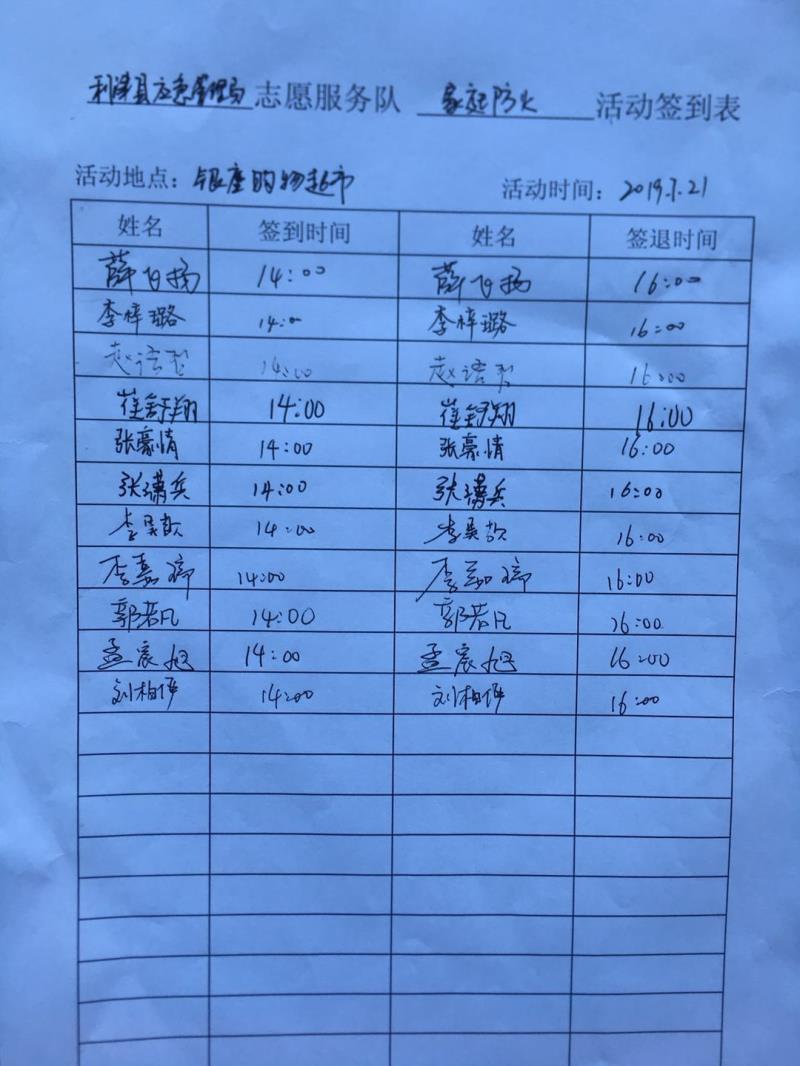 利津县应急管理局志愿服务队 家庭防火 活动签到表
活动地点：银座购物超市 活动时间：2019.7.21
姓名 签到时间 姓名 签退时间
薛飞扬 14:00 薛飞扬 16:00
李梓璐 14:00 李梓璐 16:00
赵 14:00 赵 16:00
崔舒翔 14:00 崔舒翔 16:00
张豪情 14:00 张豪情 16:00
张 兵 14:00 张 兵 16:00
李昊 14:00 李昊 16:00
李嘉瑞 14:00 李嘉瑞 16:00
郭若凡 14:00 郭若凡 16:00
孟宸旭 14:00 孟宸旭 16:00
刘相 14:00 刘相 16:00